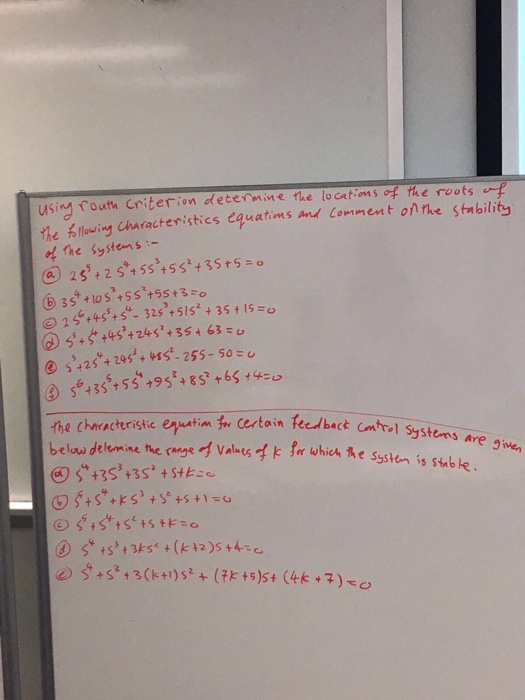 using routh criterion determine the locations of the roots of
the following characteristics equations and comment on the stability
of the systems :-
ⓐ 2s⁵ + 2s⁴ + 5s³ + 5s² + 3s + 5 = 0
ⓑ 3s⁴ + 10s³ + 5s² + 5s + 3 = 0
ⓒ 2s⁶ + 4s⁵ + s⁴ - 32s³ + 51s² + 3s + 15 = 0
ⓓ s⁵ + s⁴ + 4s³ + 24s² + 3s + 63 = 0
ⓔ s⁵ + 2s⁴ + 24s³ + 48s² - 25s - 50 = 0
ⓕ s⁶ + 3s⁵ + 5s⁴ + 9s³ + 8s² + 6s + 4 = 0
The characteristic equation for certain feedback control systems are given
below determine the range of values of k for which the system is stable.
ⓐ s⁴ + 3s³ + 3s² + s + k = 0
ⓑ s⁵ + s⁴ + ks³ + s² + s + 1 = 0
ⓒ s⁵ + s⁴ + s² + s + k = 0
ⓓ s⁴ + s³ + 3ks² + (k+2)s + 4 = 0
ⓔ s⁴ + s³ + 3(k+1)s² + (7k+5)s + (4k+7) = 0